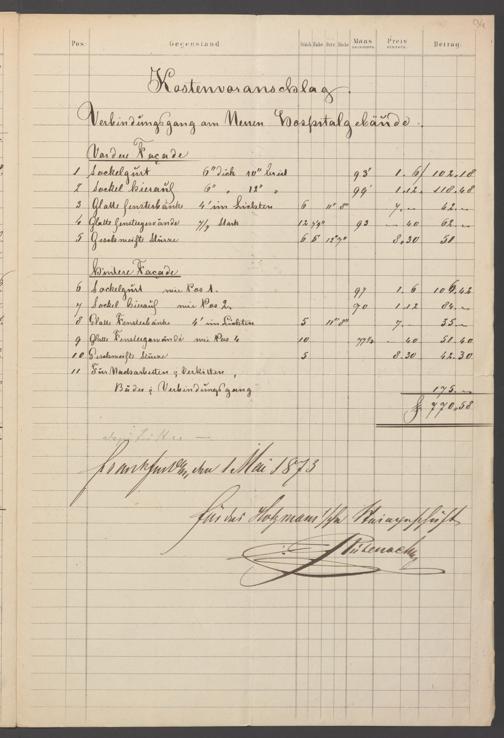 94
Pos. Gegenstand Stück Maas Preis Betrag.
Kostenvoranschlag.
Verbindungsgang am Neuen Hospitalgebäude.
Vordere Façade
1 Sockelgurt 6" dick 10" breit 93' 1.6 102.18
2 Sockel hierauf 6" " 12" " 99' 1.12 118.48
3 Glatte Fensterbänke 4' im Lichten 6 11" 8" 7.— 42.—
4 Glatte Fenstergewände 7/9 stark 12 93 — 40 62.—
5 Geschweifte Stürze 6 8.30 51
Hintere Façade
6 Sockelgurt wie Pos 1. 97 1.6 106.42
7 Sockel hierauf wie Pos 2. 70 1.12 84.—
8 Glatte Fensterbänke 4' im Lichten 5 11" 8" 7.— 35.—
9 Glatte Fenstergewände wie Pos. 4 10 — 40 51.40
10 Geschweifte Stürze 5 8.30 42.30
11 Für Nacharbeiten & Verkitten,
Bäder & Verbindungsgang 175.—
770.58
Frankfurt a/M, den 1 Mai 1873
für das Holzmann'sche Steingeschäft